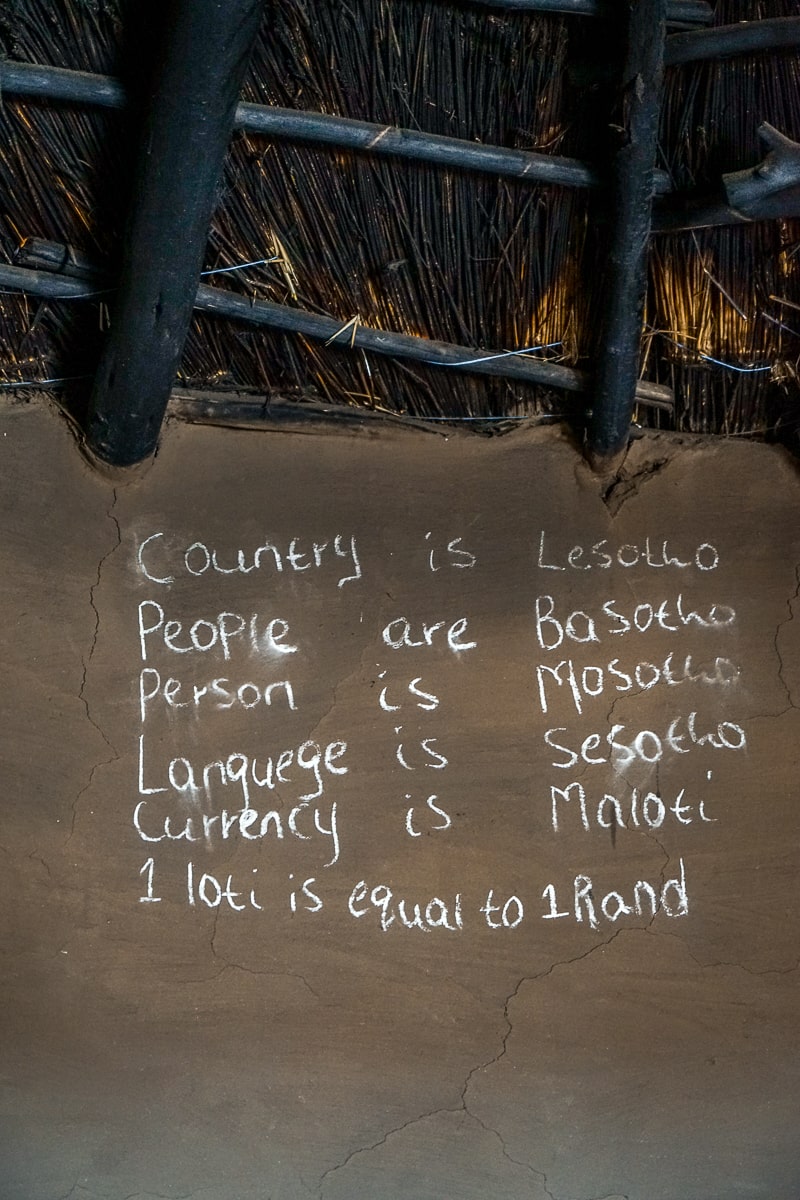 Country is Lesotho
People are Basotho
Person is Mosotho
Languege is Sesotho
Currency is Maloti
1 loti is equal to 1 Rand